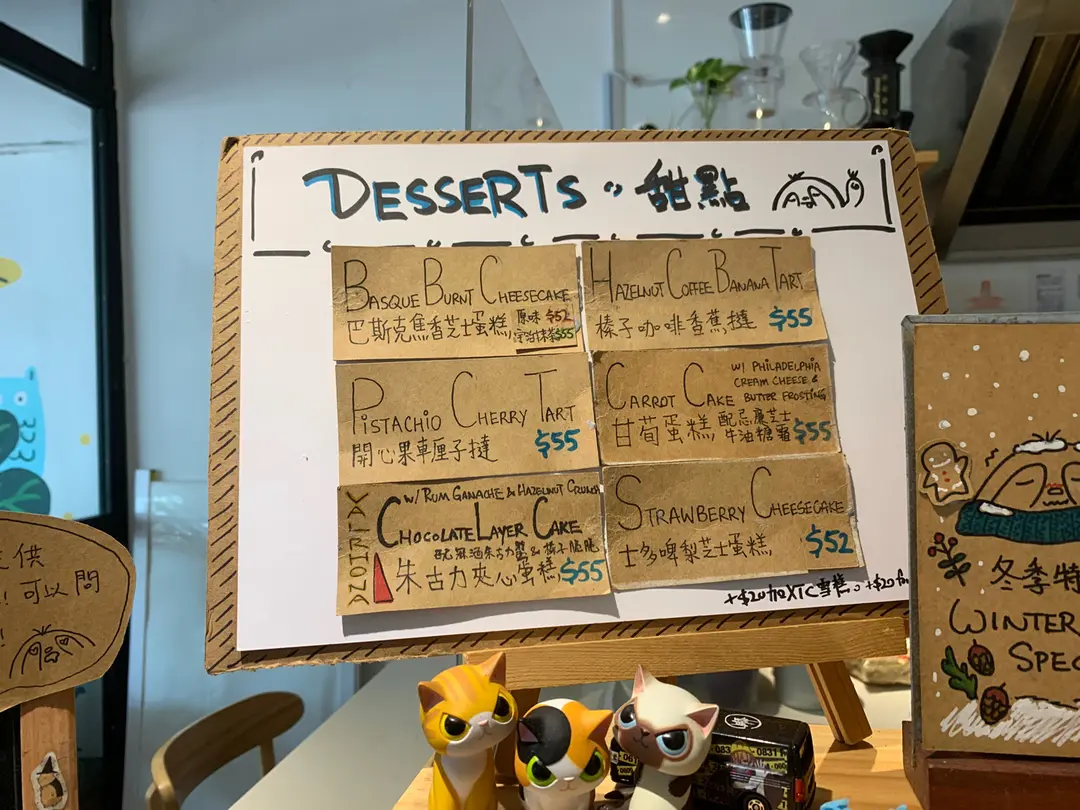 DESSERTS 甜點
BASQUE BURNT CHEESECAKE
巴斯克焦香芝士蛋糕
原味 $52
$55
HAZELNUT COFFEE BANANA TART
榛子咖啡香蕉撻 $55
PISTACHIO CHERRY TART
開心果車厘子撻 $55
CARROT CAKE
W/ PHILADELPHIA
CREAM CHEESE &
BUTTER FROSTING
甘荀蛋糕 配忌廉芝士
牛油糖霜 $55
VALRHONA
W/ RUM GANACHE & HAZELNUT CRUNCH
CHOCOLATE LAYER CAKE
朱古力夾心蛋糕 $55
STRAWBERRY CHEESECAKE
士多啤梨芝士蛋糕 $52
+$20 XTC雪糕
+$20 for
提供
可以問
冬季特
WINTER
SPEC